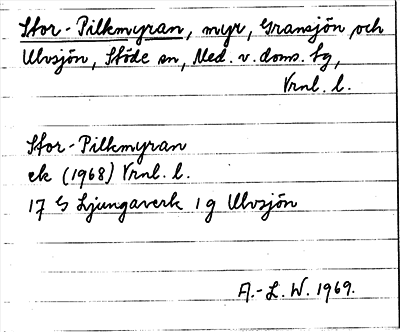 Stor-Pilkmyran, myr, Gransjön och
Ulvsjön, Stöde sn, Med. v. doms. tg,
Vrnl. l.
Stor-Pilkmyran
ek (1968) Vrnl. l.
17 G Ljungaverk 1 g Ulvsjön
A.-L. W. 1969.